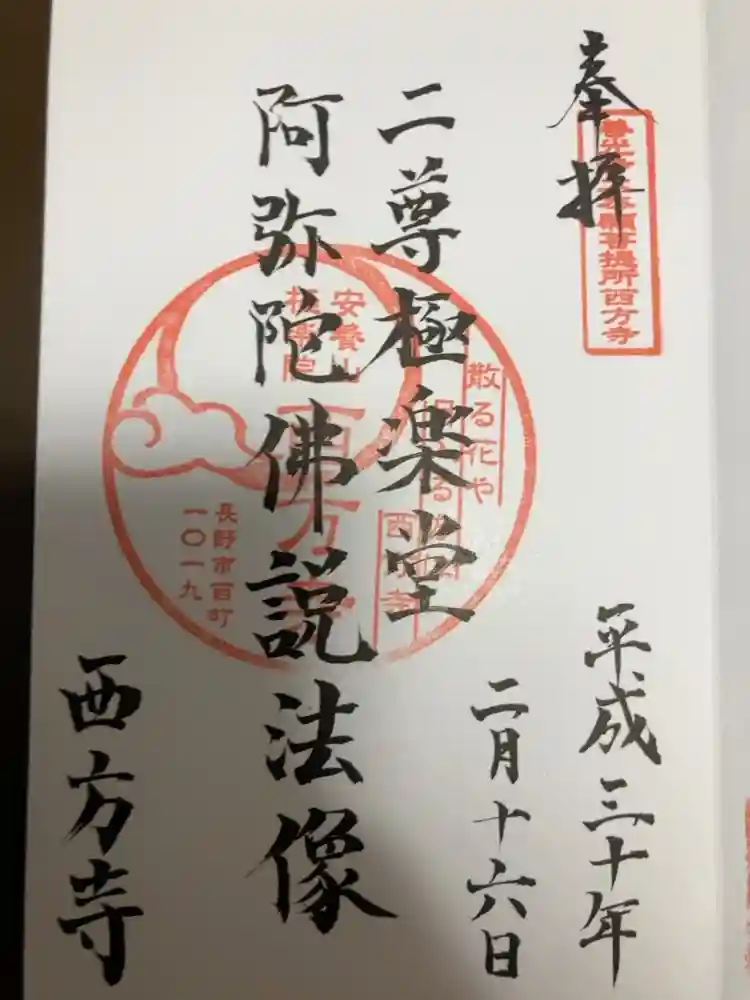 奉拝
本願菩提所西方寺
平成三十年
二月十六日
二尊極楽堂
阿弥陀佛説法像
西方寺
散る花や
西方寺
安養山
極楽院
西方寺
長野市西町
一〇一九